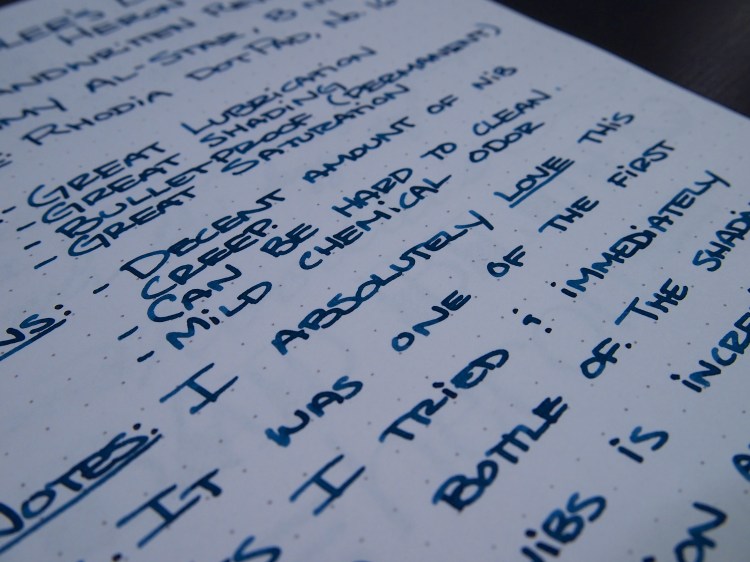 HERON
HANDWRITTEN
AL-STAR, B
RHODIA DOTPAD, NO. 16
- GREAT LUBRICATION
- GREAT SHADING
- BULLETPROOF (PERMANENT)
- GREAT SATURATION
- DECENT AMOUNT OF NIB
CREEP.
- CAN BE HARD TO CLEAN.
- MILD CHEMICAL ODOR
NOTES: I ABSOLUTELY LOVE THIS
IT WAS ONE OF THE FIRST
I TRIED & IMMEDIATELY
BOTTLE OF. THE
NIBS IS